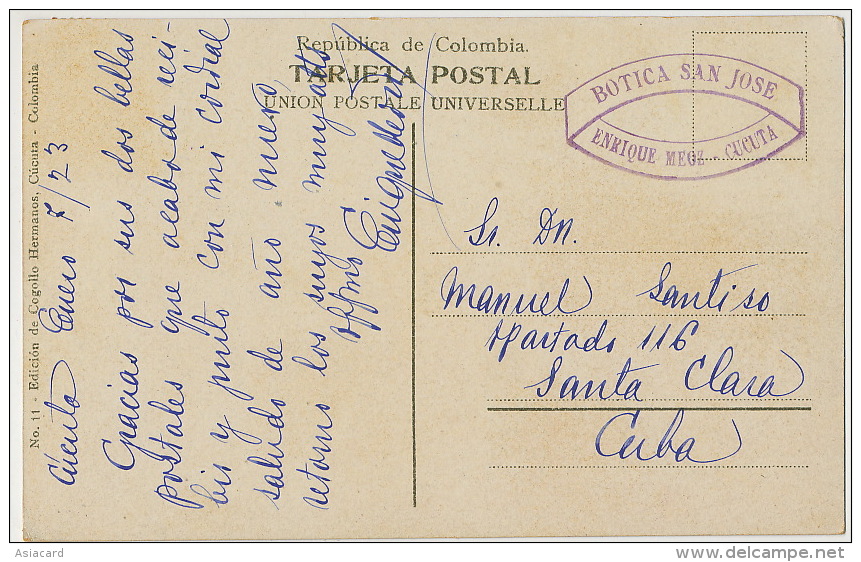 República de Colombia.
TARJETA POSTAL
UNION POSTALE UNIVERSELLE
BOTICA SAN JOSE
ENRIQUE MEOZ - CUCUTA
No. 11 - Edición de Cogollo Hermanos, Cúcuta - Colombia
Cúcuta Enero 7/23
Gracias por sus dos bellas
postales que acabo de reci-
bir y junto con mi cordial
saludo de año nuevo,
retorno los suyos muy atto
Sr. Dn.
Manuel Santiso
Apartado 116
Santa Clara
Cuba
Asiacard
delcampe.net